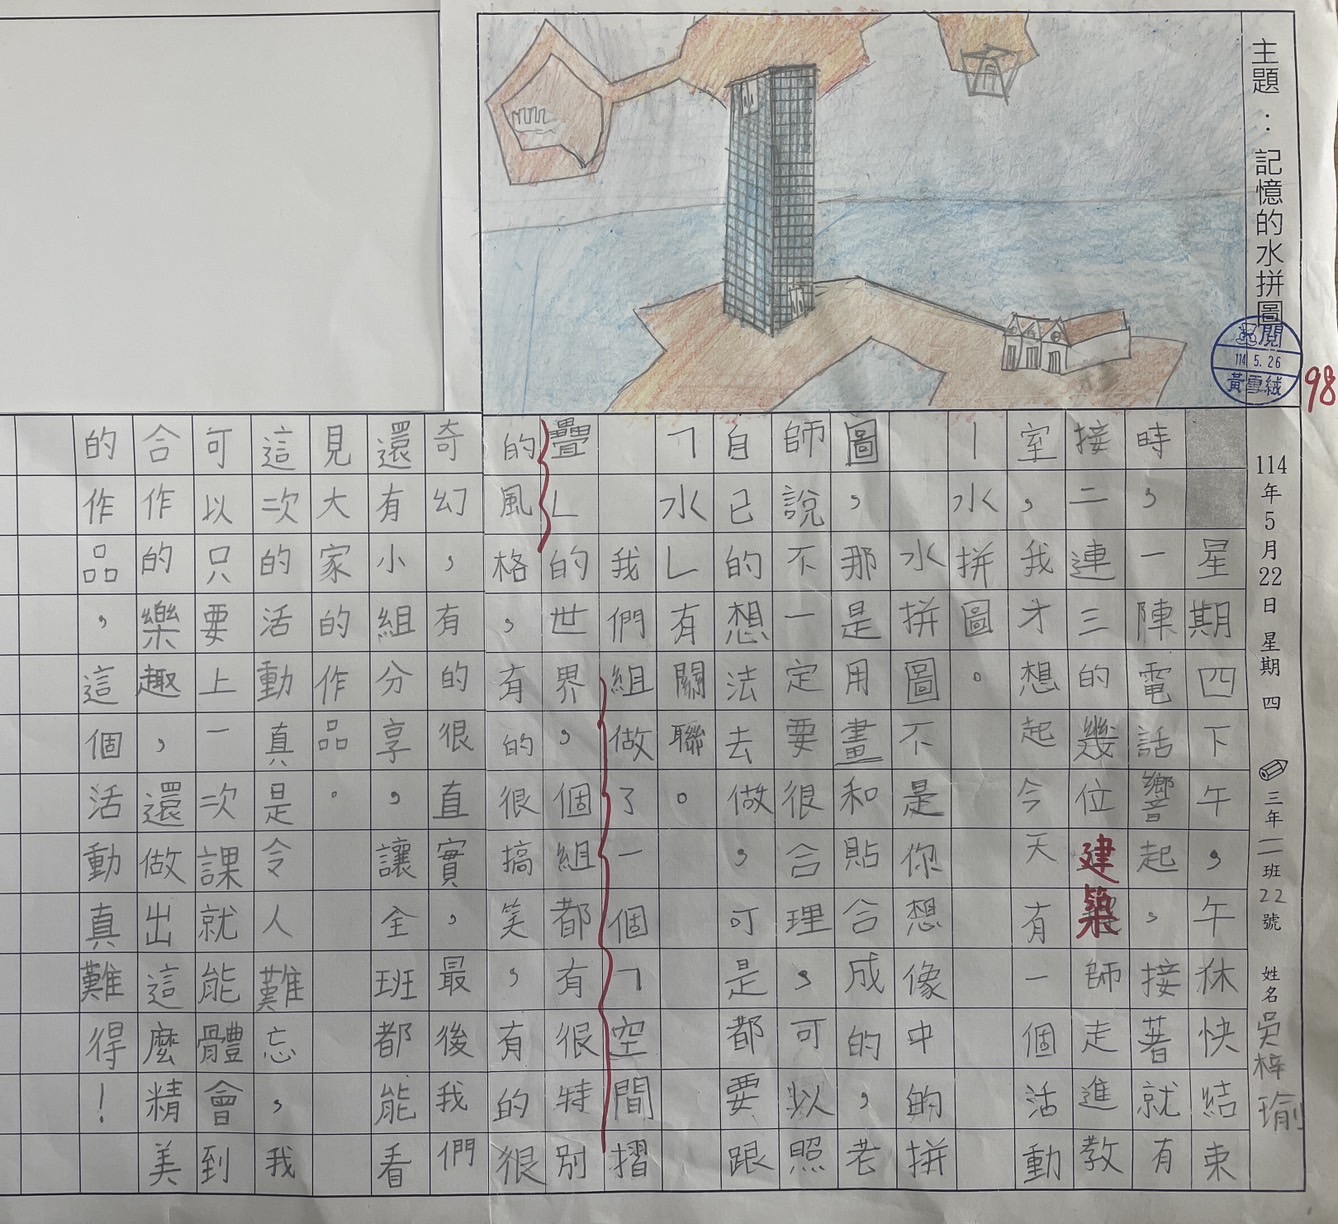 主題：記憶的水拼圖
閱
114.5.26
98
114年5月22日 星期四 三年二班22號 姓名 吳梓瑜
星期四下午，午休快結束
時，一陣電話響起，接著就有
接二連三的幾位建築師走進教
室，我才想起今天有一個活動
｜水拼圖。
水拼圖不是你想像中的拼
圖，那是用畫和貼合成的，老
師說不一定要很合理，可以照
自己的想法去做，可是都要跟
「水」有關聯。
我們組做了一個「空間摺
疊」的世界，個組都有很特別
的風格，有的很搞笑，有的很
奇幻，有的很直實，最後我們
還有小組分享，讓全班都能看
見大家的作品。
這次的活動真是令人難忘，我
可以只要上一次課就能體會到
合作的樂趣，還做出這麼精美
的作品，這個活動真難得！